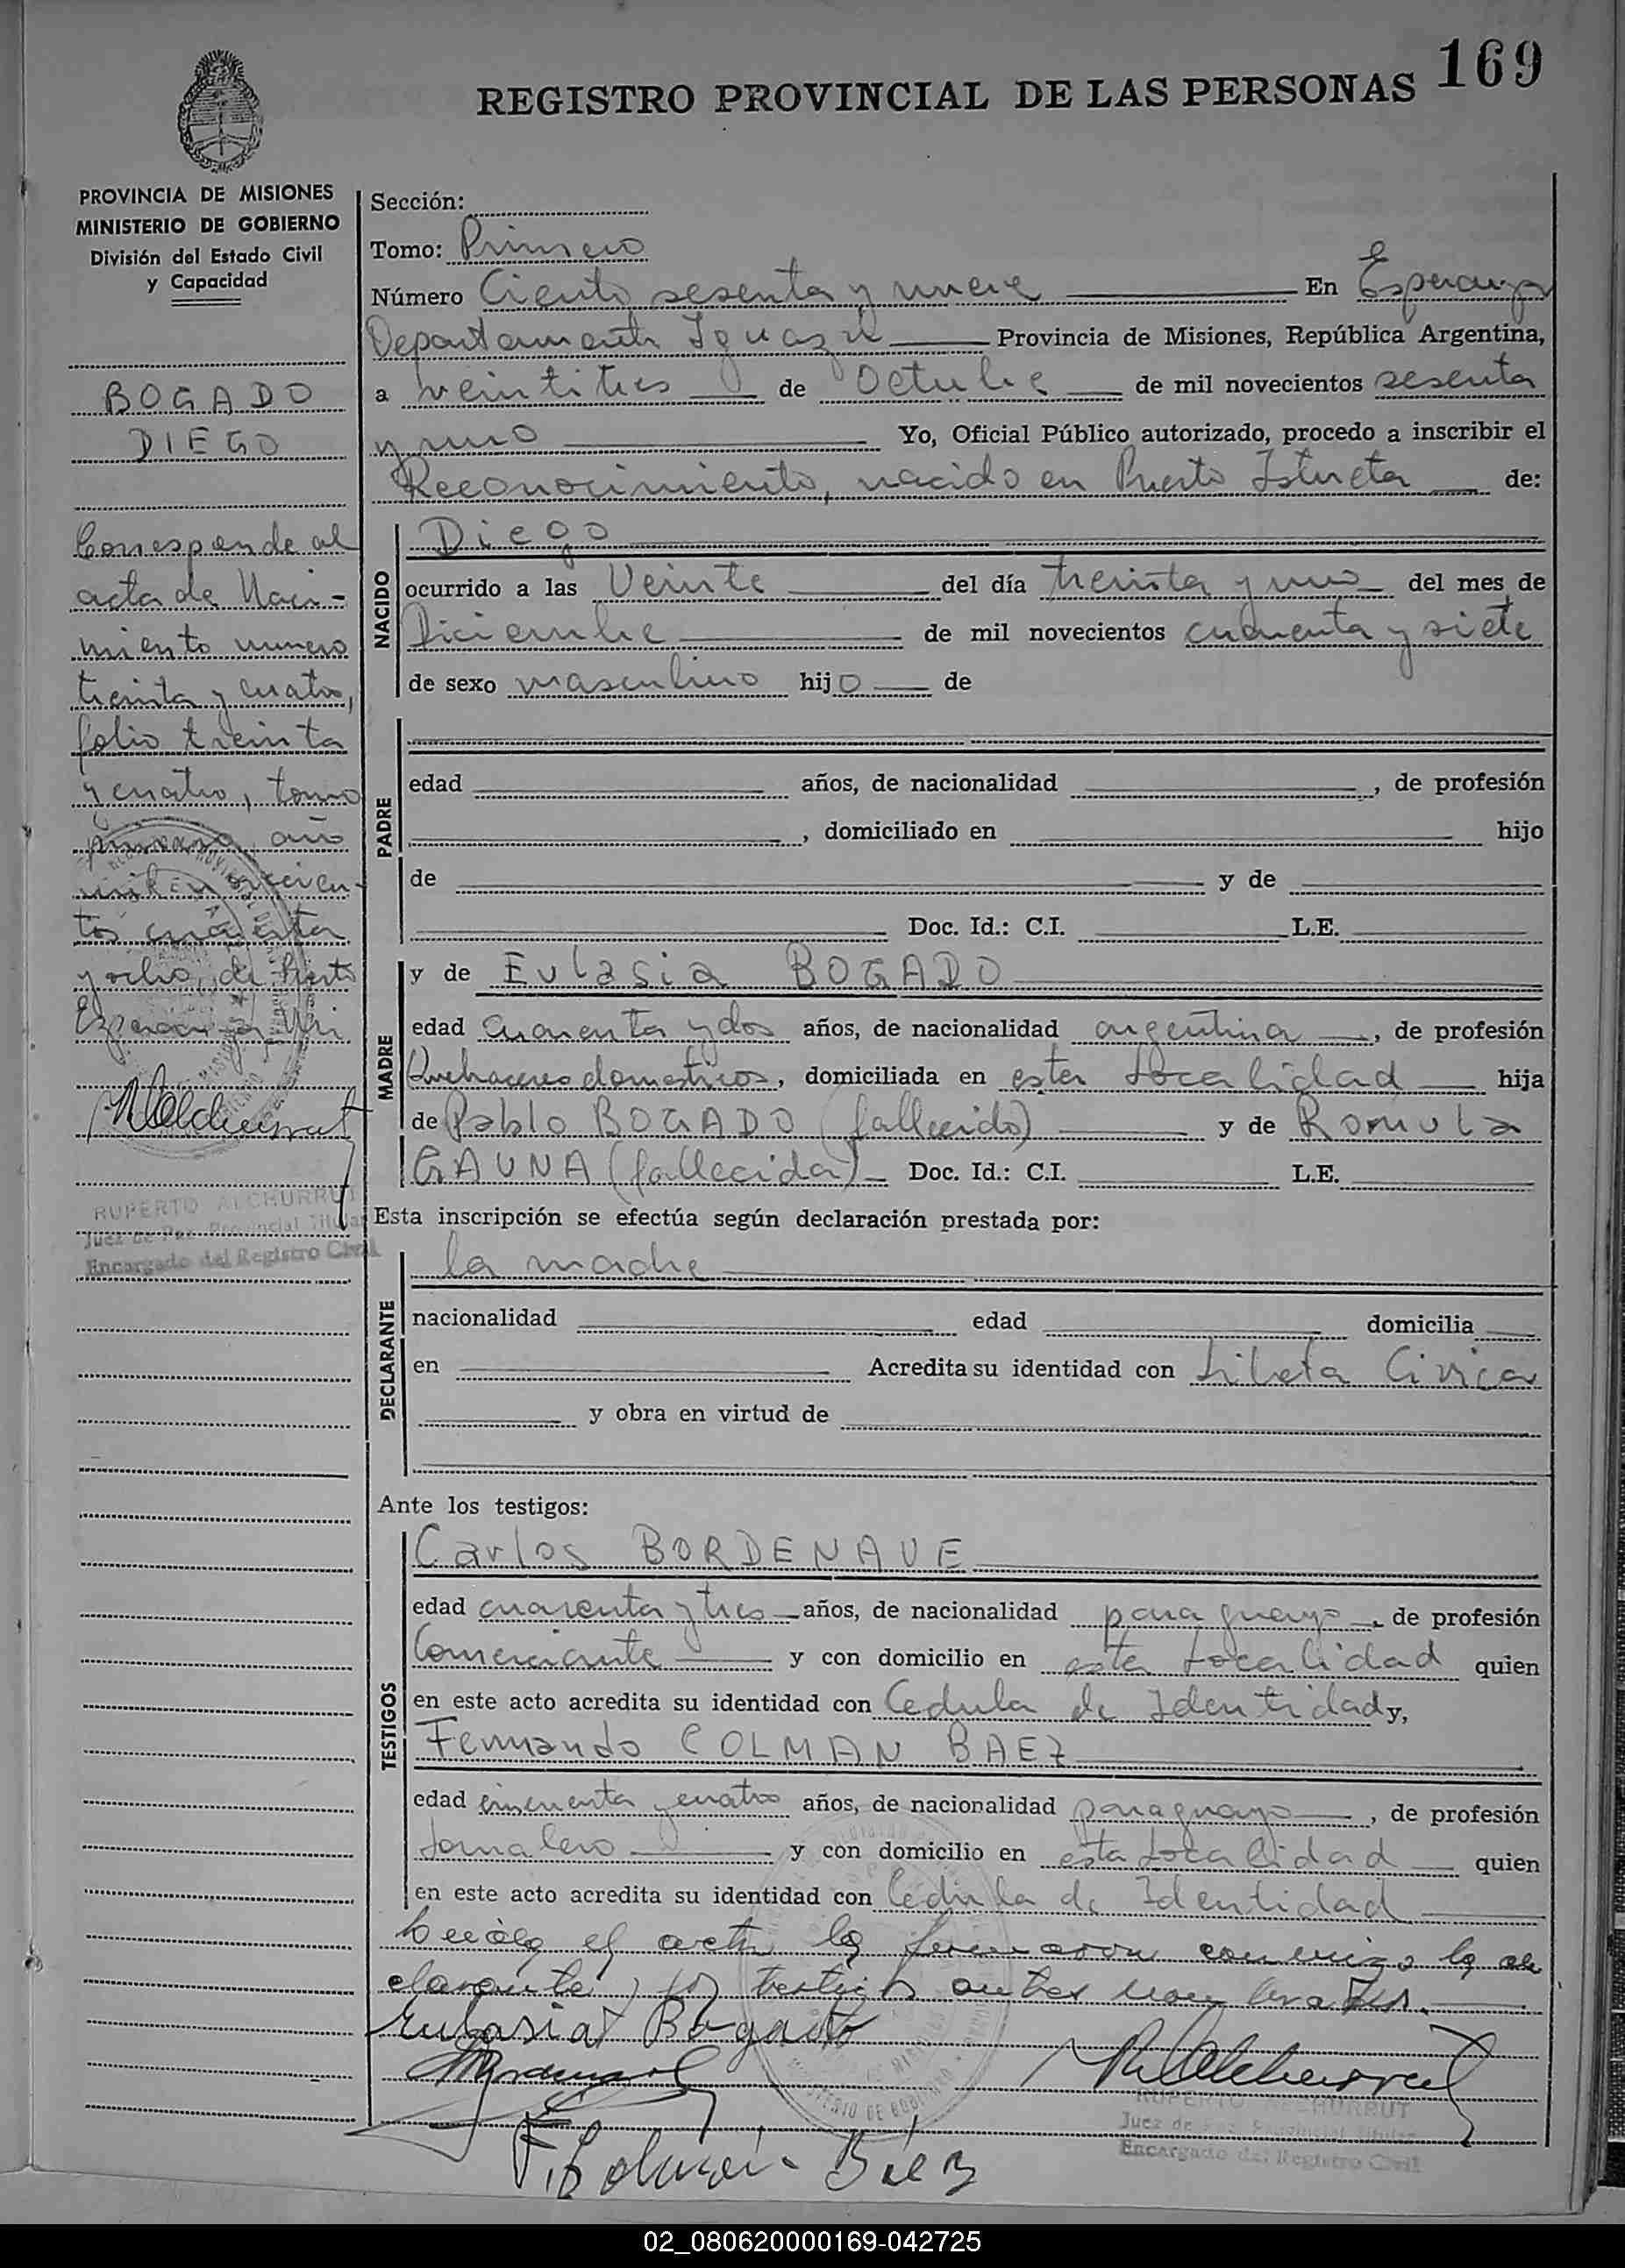 169
REGISTRO PROVINCIAL DE LAS PERSONAS
PROVINCIA DE MISIONES
MINISTERIO DE GOBIERNO
División del Estado Civil
y Capacidad
BOGADO
DIEGO
Corresponde al
acta de Naci-
miento numero
treinta y cuatro,
folio treinta
y cuatro, tomo
primero, año
mil novecien-
tos cuarenta
y ocho, de Puerto
Esperanza
RUPERTO ALCHURRUT
Juez de Paz Provincial Titular
Encargado del Registro Civil
Sección:
Tomo: Primero
Número Ciento sesenta y nueve En Esperanza
Departamento Iguazú Provincia de Misiones, República Argentina,
a veintitres de Octubre de mil novecientos sesenta
y uno Yo, Oficial Público autorizado, procedo a inscribir el
Reconocimiento, nacido en Puerto Istueta de:
NACIDO
Diego
ocurrido a las Veinte del día treinta y uno del mes de
Diciembre de mil novecientos cuarenta y siete
de sexo masculino hijo de
PADRE
edad años, de nacionalidad , de profesión
, domiciliado en hijo
de y de
Doc. Id.: C.I. L.E.
MADRE
y de Eulasia BOGADO
edad cuarenta y dos años, de nacionalidad argentina , de profesión
Quehaceres domesticos, domiciliada en esta Localidad hija
de Pablo BOGADO (fallecido) y de Romula
GAUNA (fallecida) Doc. Id.: C.I. L.E.
Esta inscripción se efectúa según declaración prestada por:
DECLARANTE
la madre
nacionalidad edad domicilia
en Acredita su identidad con Libreta Civica
y obra en virtud de
Ante los testigos:
TESTIGOS
Carlos BORDENAVE
edad cuarenta y tres años, de nacionalidad paraguayo , de profesión
Comerciante y con domicilio en esta Localidad quien
en este acto acredita su identidad con Cedula de Identidad y,
Fernando COLMAN BAEZ
edad cincuenta y cuatro años, de nacionalidad paraguayo , de profesión
Jornalero y con domicilio en esta Localidad quien
en este acto acredita su identidad con Cedula de Identidad
el acta la firmaron conmigo la de
clarante y los testigos antes nombrados.
Eulasia Bogado
F. Colman Báez
RUPERTO ALCHURRUT
Juez de Paz Provincial Titular
Encargado del Registro Civil
02_080620000169-042725